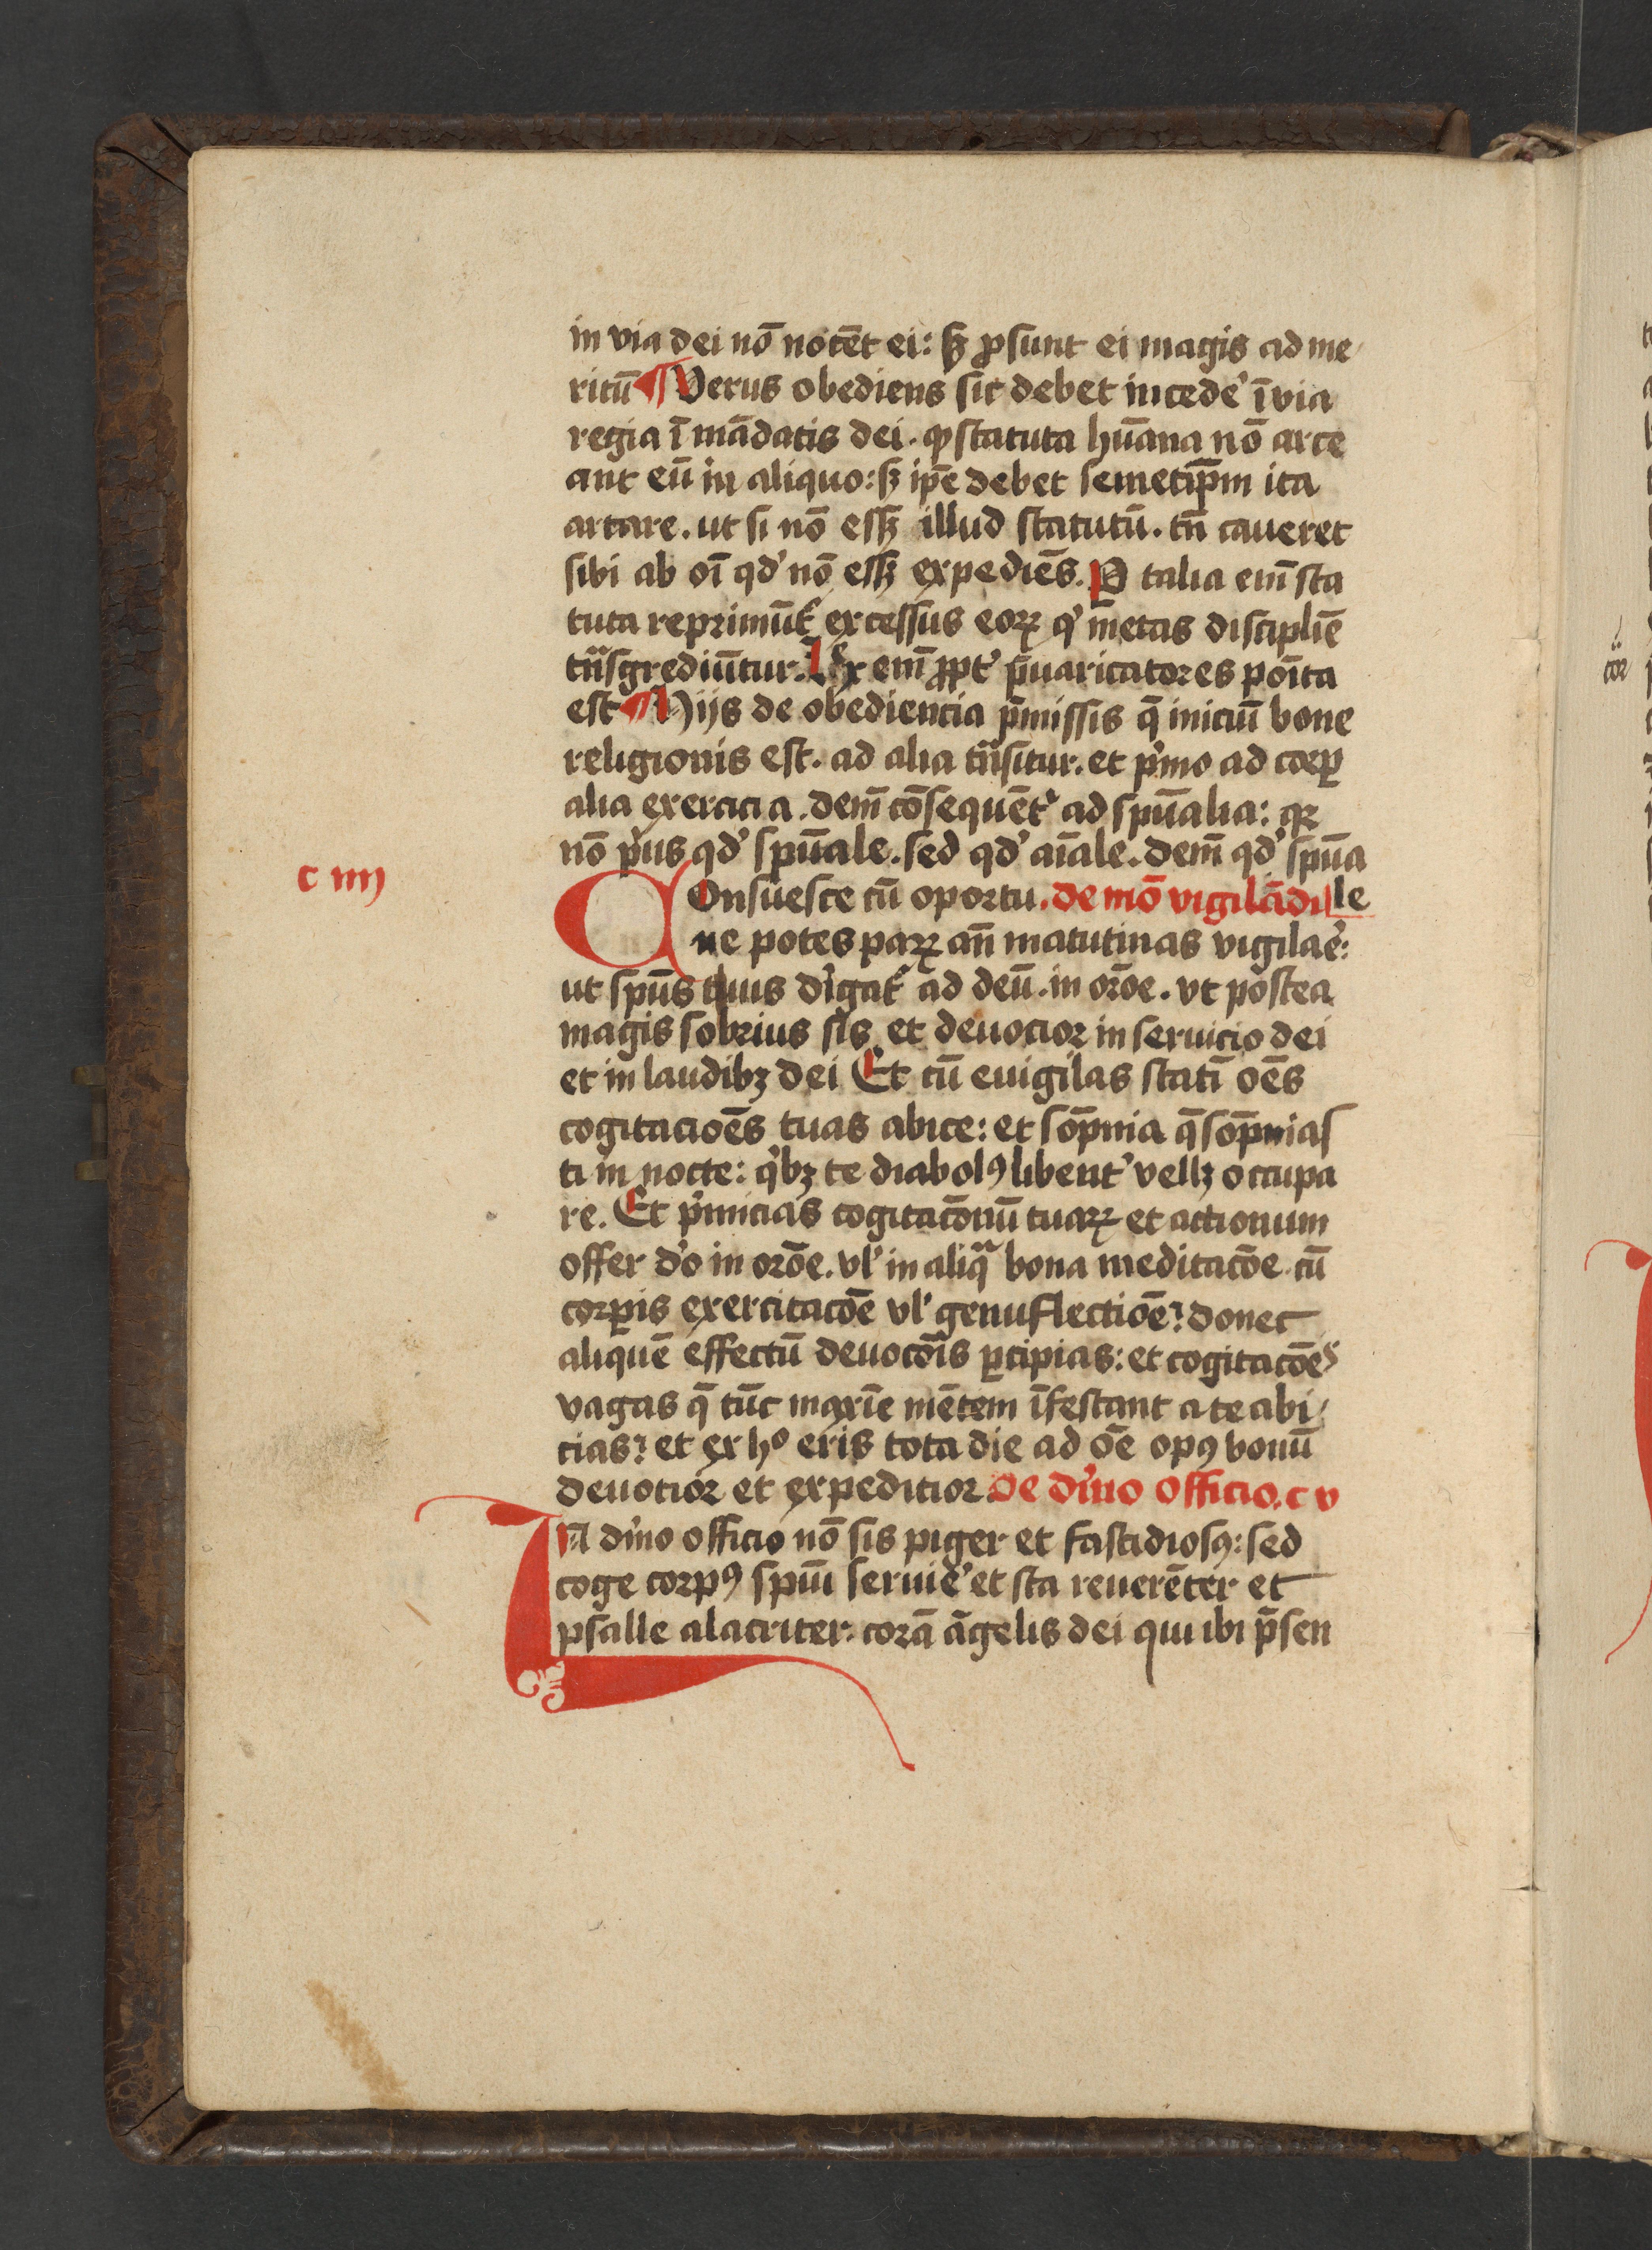 in via dei nō nocēt ei: sꝫ ꝓsunt ei magis ad me
ritū ¶ Verus obediens sic debet incedeʼ ī via
regia ī mādatis dei. ꝙ statuta hūana nō arce
ant eū in aliquo: sꝫ ip̄e debet semetip̄m ita
artare. ut si nō essꝫ illud statutū. tn̄ caueret
sibi ab oī qdʼ nō essꝫ expediēs. P talia eīm sta
tuta reprimūtʼ excessus eoꝝ qʼ metas disciplīe
tͣnsgrediūtur. Lex eīm ꝓptʼ p̄uaricatores poīta
est ¶ Hijs de obediencia p̄missis q̄ iniciū bone
religionis est. ad alia tͣnsitur. et pʼmo ad corꝑ
alia exercicia. deīn cōsequētʼ ad spūalia: qꝛ
nō pʼus qdʼ spūale. sed qdʼ aīale. deīn qdʼ spūa
c iiij
COnsuesce cū oportu. de mō vigilādi le
ne potes paꝝ an̄ matutinas vigilaʼe:
ut spūs tuus dʼigatʼ ad deū. in orōe. vt postea
magis sobrius sis et deuocior in seruicio dei
et in laudibꝫ dei Et cū euigilas statī oēs
cogitacioēs tuas abice: et sōpnia q̄ sōpnias
ti in nocte: qʼbꝫ te diabolꝰ libentʼ vellꝫ occupa
re. Et pʼmicias cogitacōnū tuaꝝ et actionum
offer dʼo in orōe. vlʼ in aliqͣ bona meditacōe cū
corꝑis exercitacōe vlʼ genuflectiōe? donec
aliquē effectū deuocōis ꝑcipias: et cogitacōes
vagas q̄ tūc maxīe mētem īfestant a te abi
cias? et ex hº eris tota die ad oē opꝰ bonū
deuotior et expeditior. De dʼino officio. c v
IN dʼino officio nō sis piger et fastidiosꝰ: sed
coge corpꝰ spūi seruiʼe et sta reuerēter et
psalle alacriter. corā āgelis dei qui ibi p̄sen